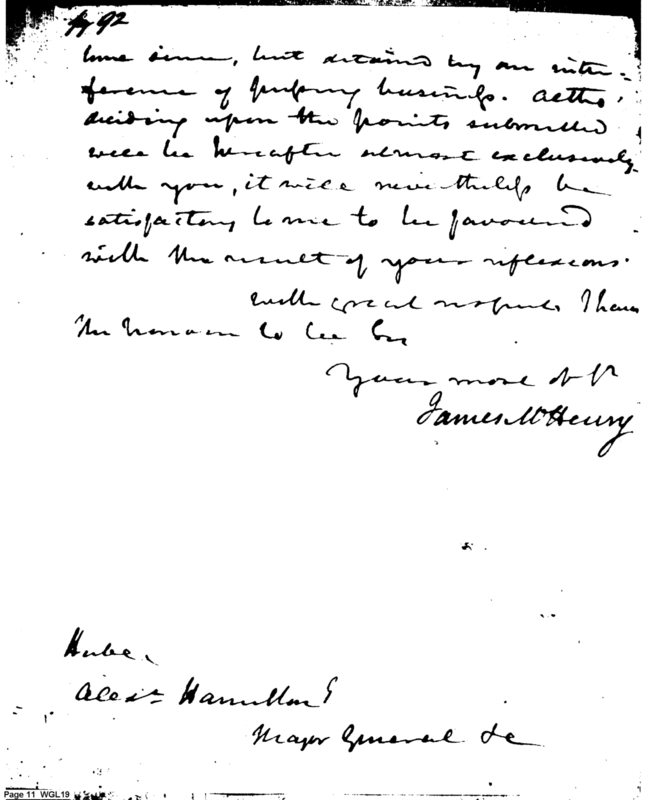 pg 92
time since, but detained by an inter-
ference of pressing business. Altho'
deciding upon the points submitted
will be hereafter almost exclusively
with you, it will nevertheless be
satisfactory to me to be favoured
with the result of your reflexions.
with great respect I have
the honour to be Sir
Your most ob st
James McHenry
Alexr Hamilton
Major General &c
Page 11 WGL19